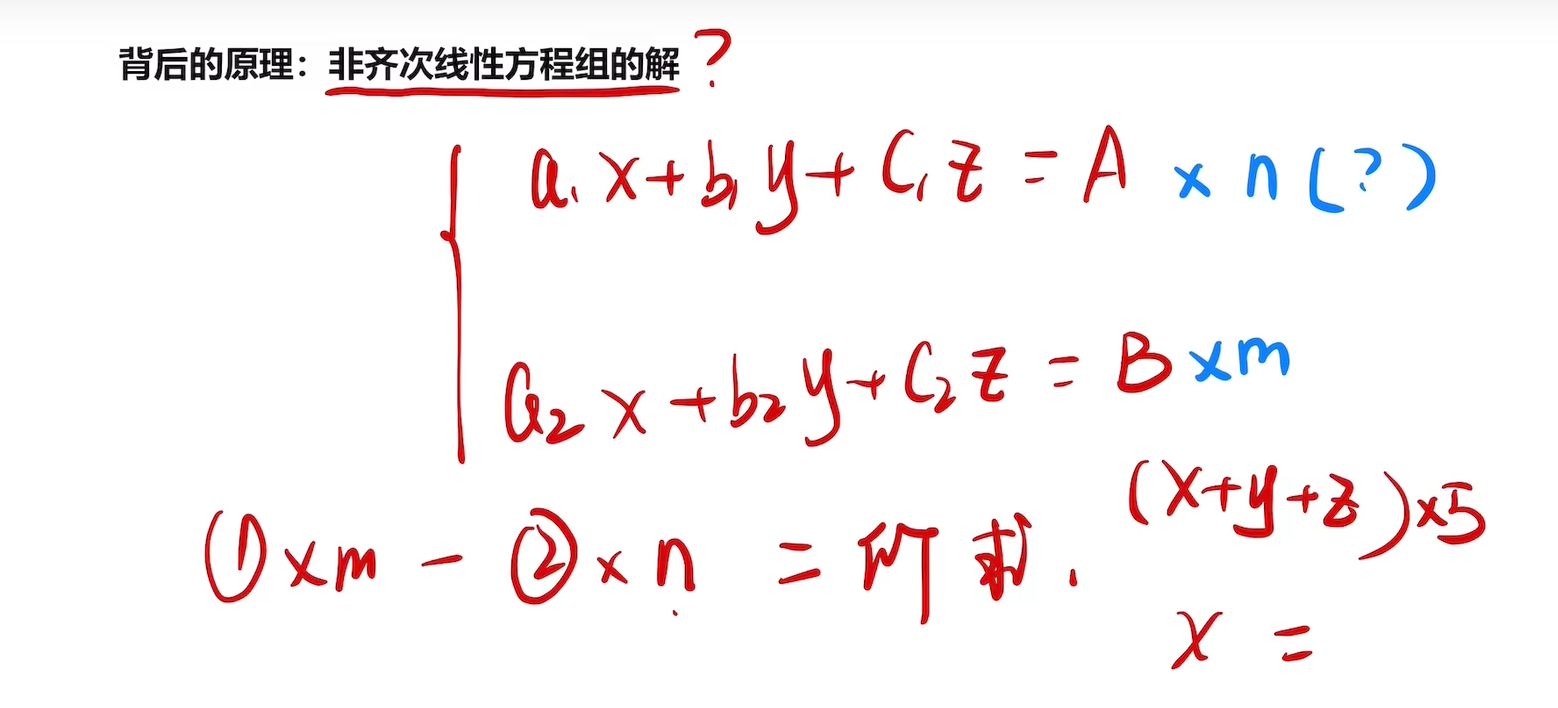 背后的原理：非齐次线性方程组的解?
a₁x+b₁y+C₁z=A ×n(?)
a₂x+b₂y+C₂z=B×m
①×m-②×n=所求.
(x+y+z)×5
x=